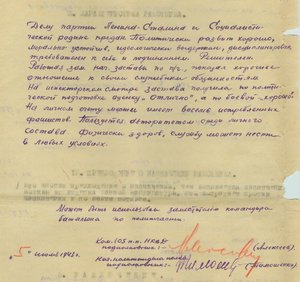 Делу партии Ленина-Сталина и Социалисти-
ческой родине предан. Политически развит хорошо,
морально устойчив, идеологически выдержан, дисциплинирован,
требователен к себе и подчиненным. Решителен.
Работая нач. заставы по п/ч. показал хорошее
отношение к своим служебным обязанностям
На инспекторском смотре застава получила по полити-
ческой подготовке оценку „Отлично", а по боевой „хорошо".
На личном счету имеет восемь истребленных
фашистов. Пользуется авторитетом среди личного
состава. Физически здоров, службу может нести
в любых условиях.
Может быть использован заместителем командира
батальона по политчасти.
Ком. 105 п.п. НКВД
подполковник: (Алексеев).
"5" июля 1942г.
подполковник: (Тимошенко)